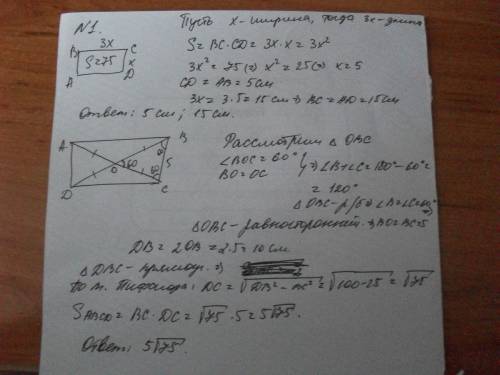 N1.
Пусть x - ширина, тогда 3x - длина
3x
B C
S=75 x
A D
S = BC·CD = 3x·x = 3x²
3x² = 75 (=) x² = 25 (=) x = 5
CD = AB = 5см
3x = 3·5 = 15 см ⇒ BC = AD = 15см
Ответ: 5 см; 15 см.
A B
60
O 60 5
60
D C
Рассмотрим △ OBC
∠BOC = 60°
BO = OC
⇒ ∠B+∠C = 180° - 60° =
= 120°
△ OBC - р/б ⇒ ∠B = ∠C = 60° ⇒
△OBC - равносторонний ⇒ BO = BC = 5
DB = 2OB = 2·5 = 10 см
△ DBC - прямоуг. ⇒
по т. Пифагора: DC = √DB² - BC² = √100-25 = √75
S ABCD = BC · DC = √75 · 5 = 5√75.
Ответ: 5√75.